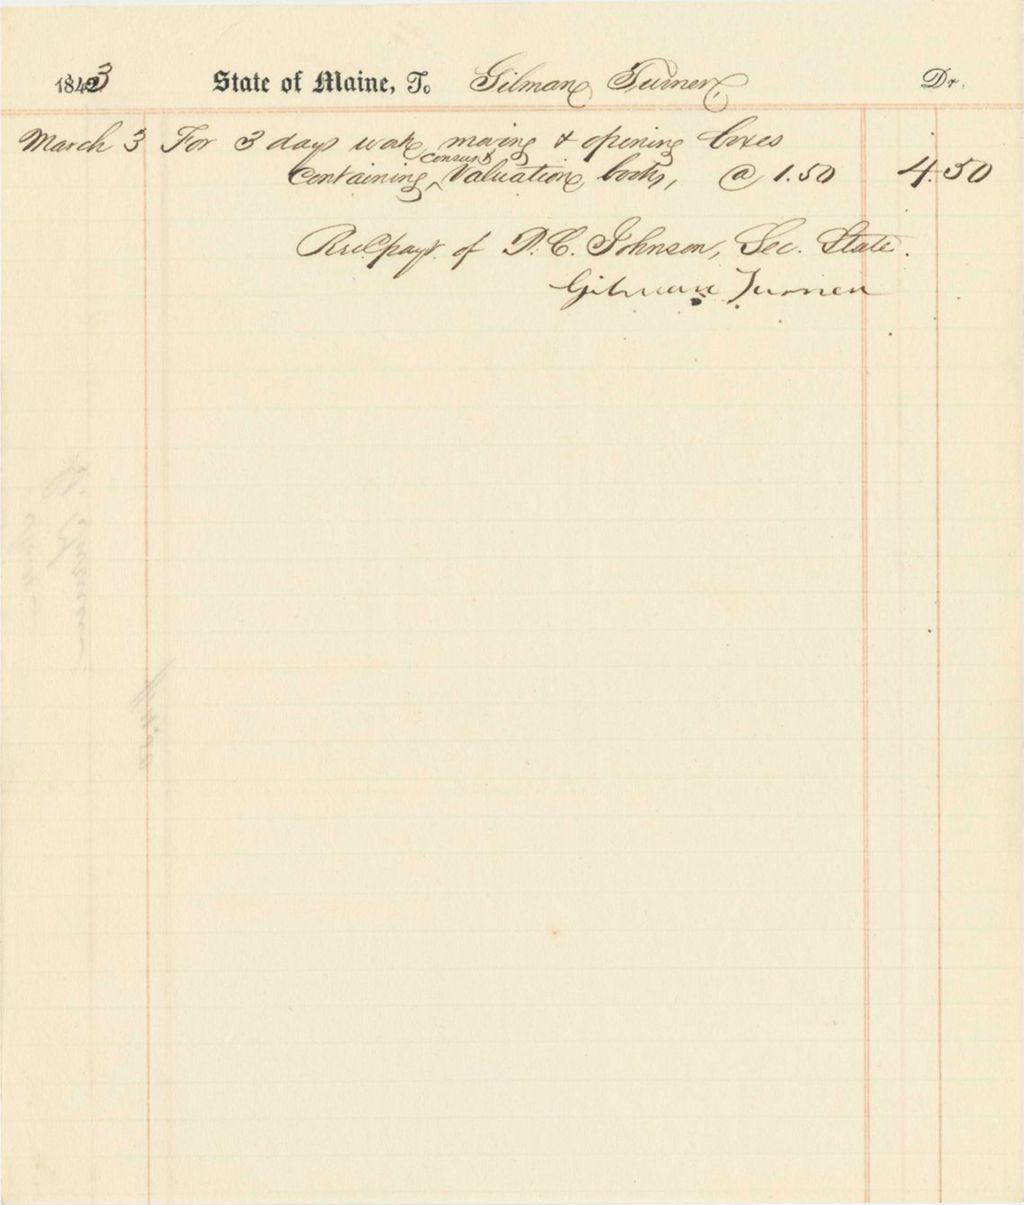 1843 State of Maine, To Gilman Turner, Dr.
March 3 For 3 days work moving & opening boxes
census
containing ^ Valuation books, @ 1.50 4.50
Rec'd payt of P. C. Johnson, Sec. State.
Gilman Turner